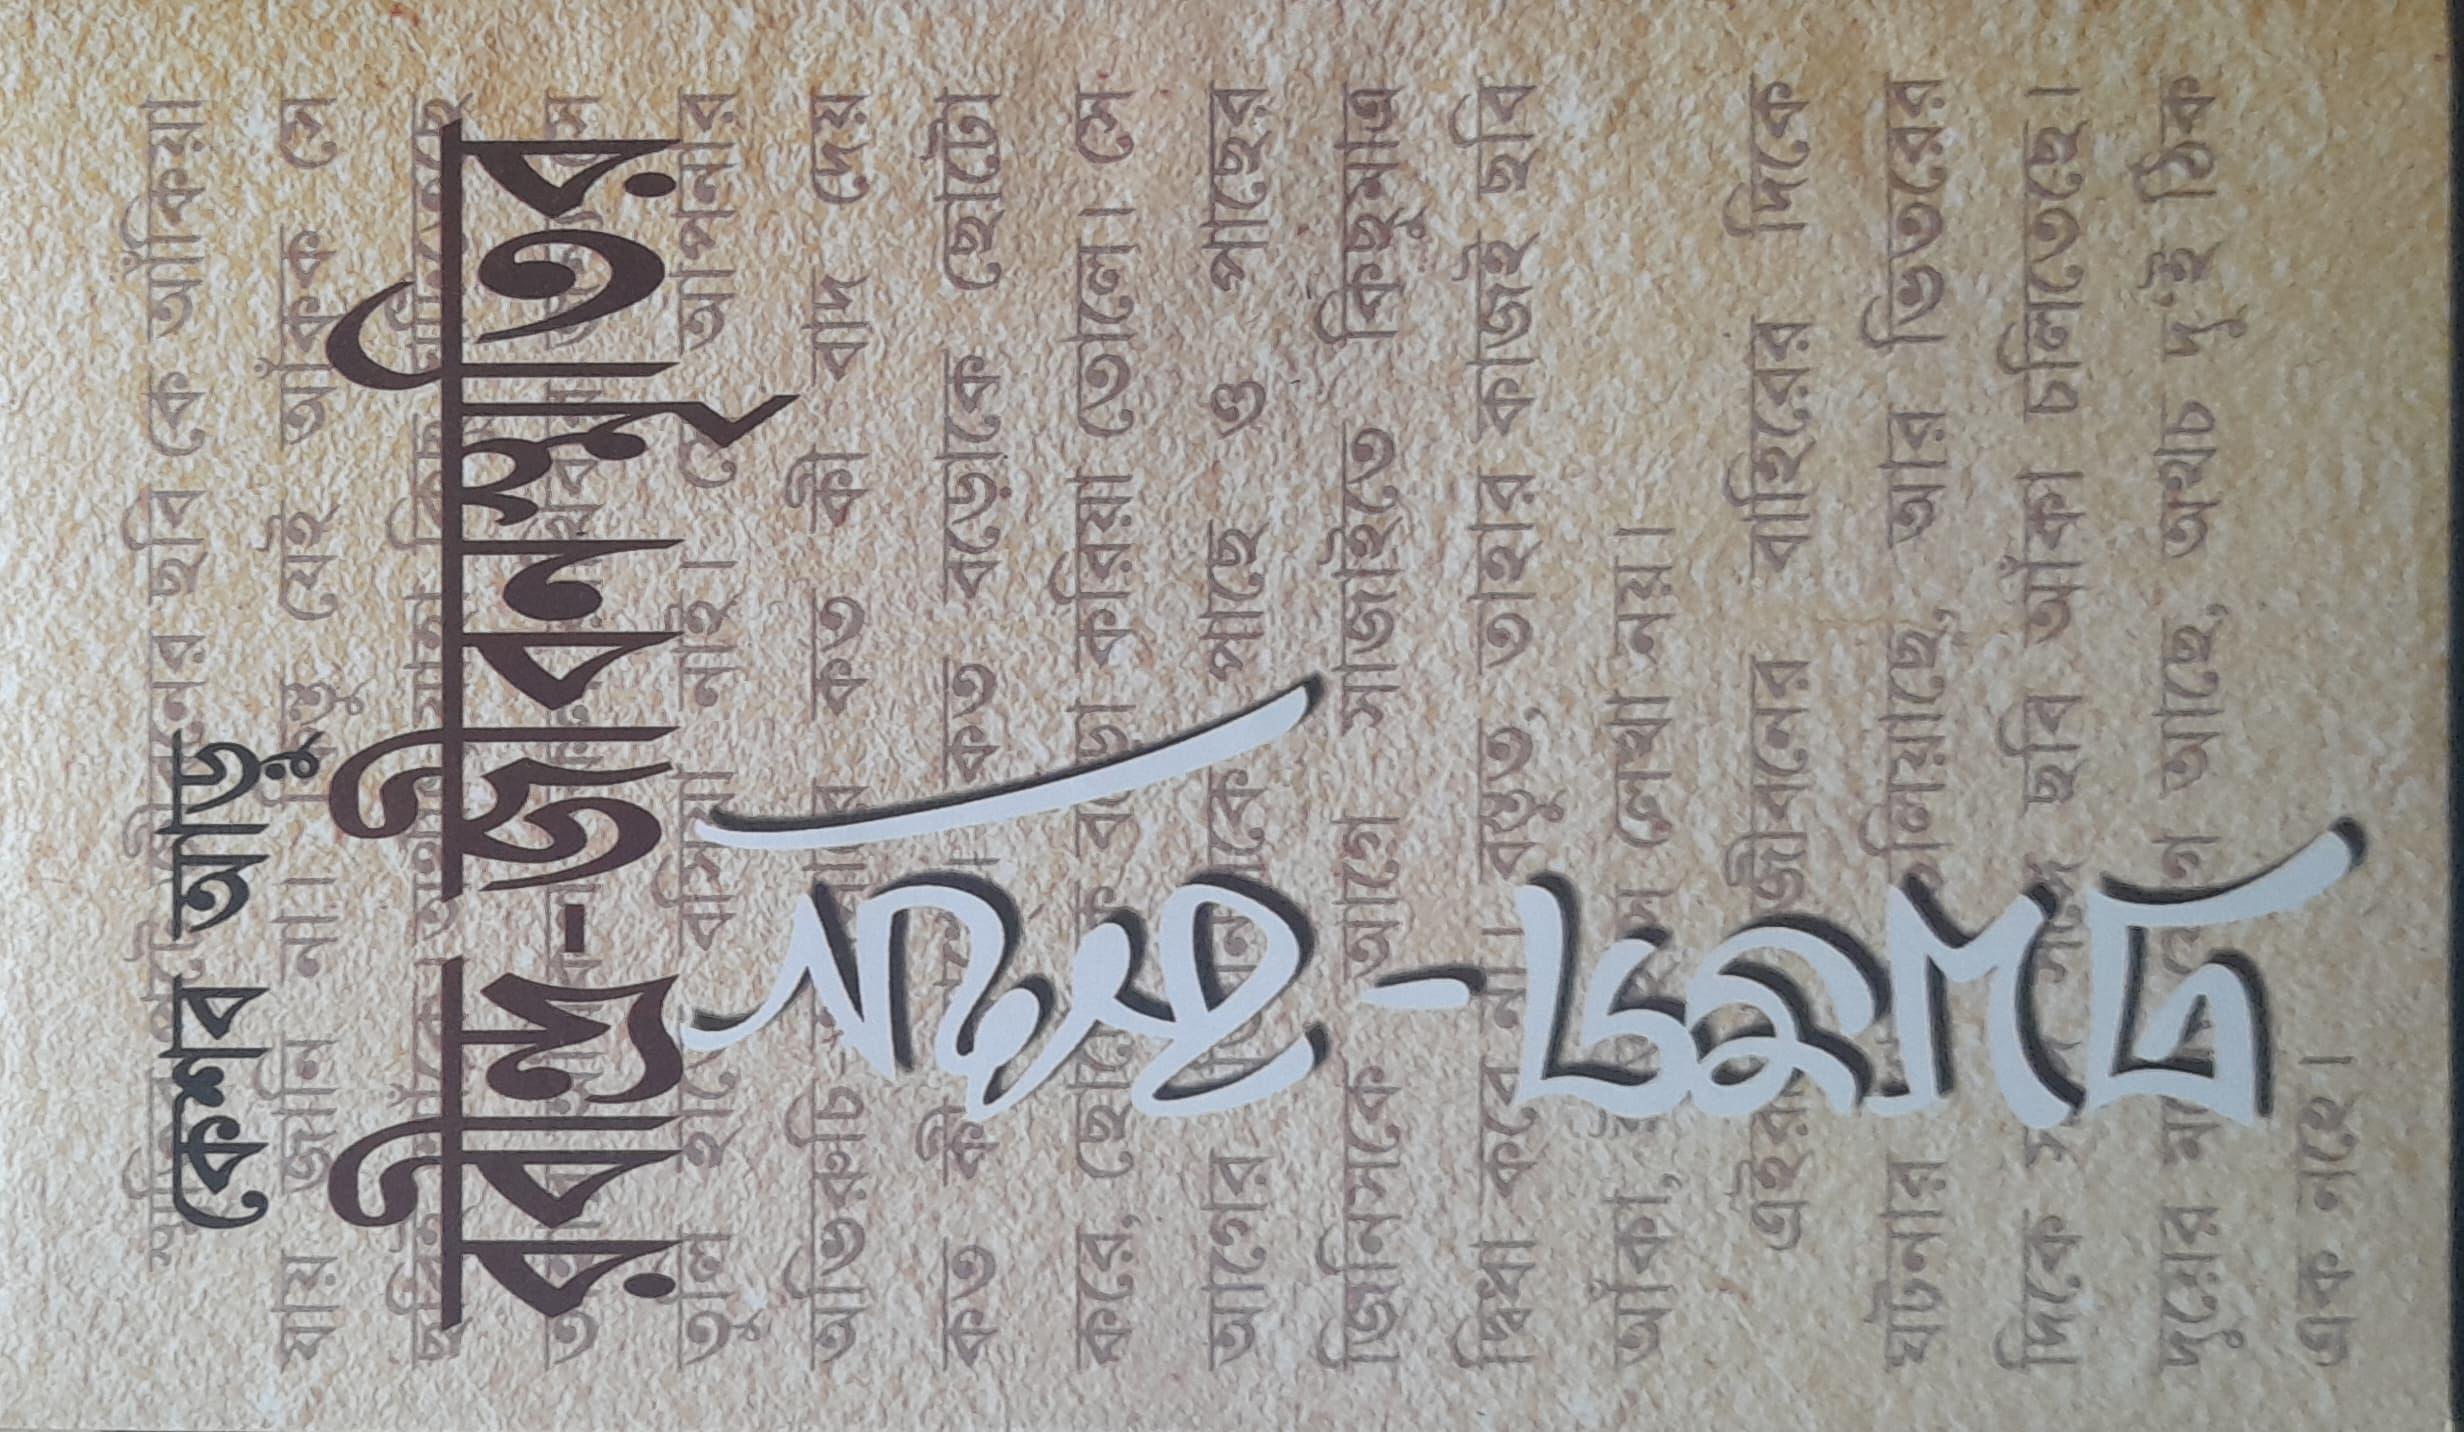 কেশব আড়ু
রবীন্দ্র-জীবনস্মৃতির
স্মৃতির পটে জীবনের ছবি কে আঁকিয়া
যায় জানি না। কিন্তু যেই আঁকুক সে
ছবিই আঁকে। অর্থাৎ যাহা কিছু ঘটিতেছে
সে
তুলি হাতে বসিয়া নাই। সে আপনার
অভিরুচি কত কী বাদ দেয়
কত কী কত বড়োকে ছোটো
করে, ছোটোকে বড়ো করিয়া তোলে। সে
আগের জিনিসকে পাছে ও পাছের
জিনিসকে আগে সাজাইতে কিছুমাত্র
দ্বিধা করে না। বস্তুত, তাহার কাজই ছবি
আঁকা, লেখা নয়।
জীবনের বাহিরের দিকে
ঘটনার চলিয়াছে, আর ভিতরের
দিকে সঙ্গে সঙ্গে ছবি আঁকা চলিতেছে।
দুয়ের মধ্যে যোগ আছে, অথচ দু'ই ঠিক
এক নহে।